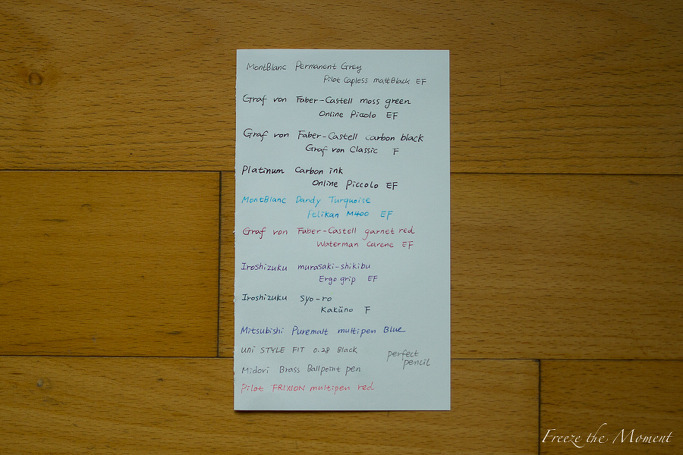 MontBlanc Permanent Grey
Pilot Capless mattBlack EF
Graf von Faber-Castell moss green
Online Piccolo EF
Graf von Faber-Castell carbon black
Graf von Classic F
Platinum Carbon ink
Online Piccolo EF
MontBlanc Dandy Turquoise
Pelikan M400 EF
Graf von Faber-Castell garnet red
Waterman Carene EF
Iroshizuku murasaki-shikibu
Ergo grip EF
Iroshizuku Syo-ro
Kaküno F
Mitsubishi Puremalt multipen Blue
uni STYLE FIT 0.28 Black
perfect pencil
Midori Brass Ballpoint pen
Pilot FRIXION multipen red
Freeze the Moment